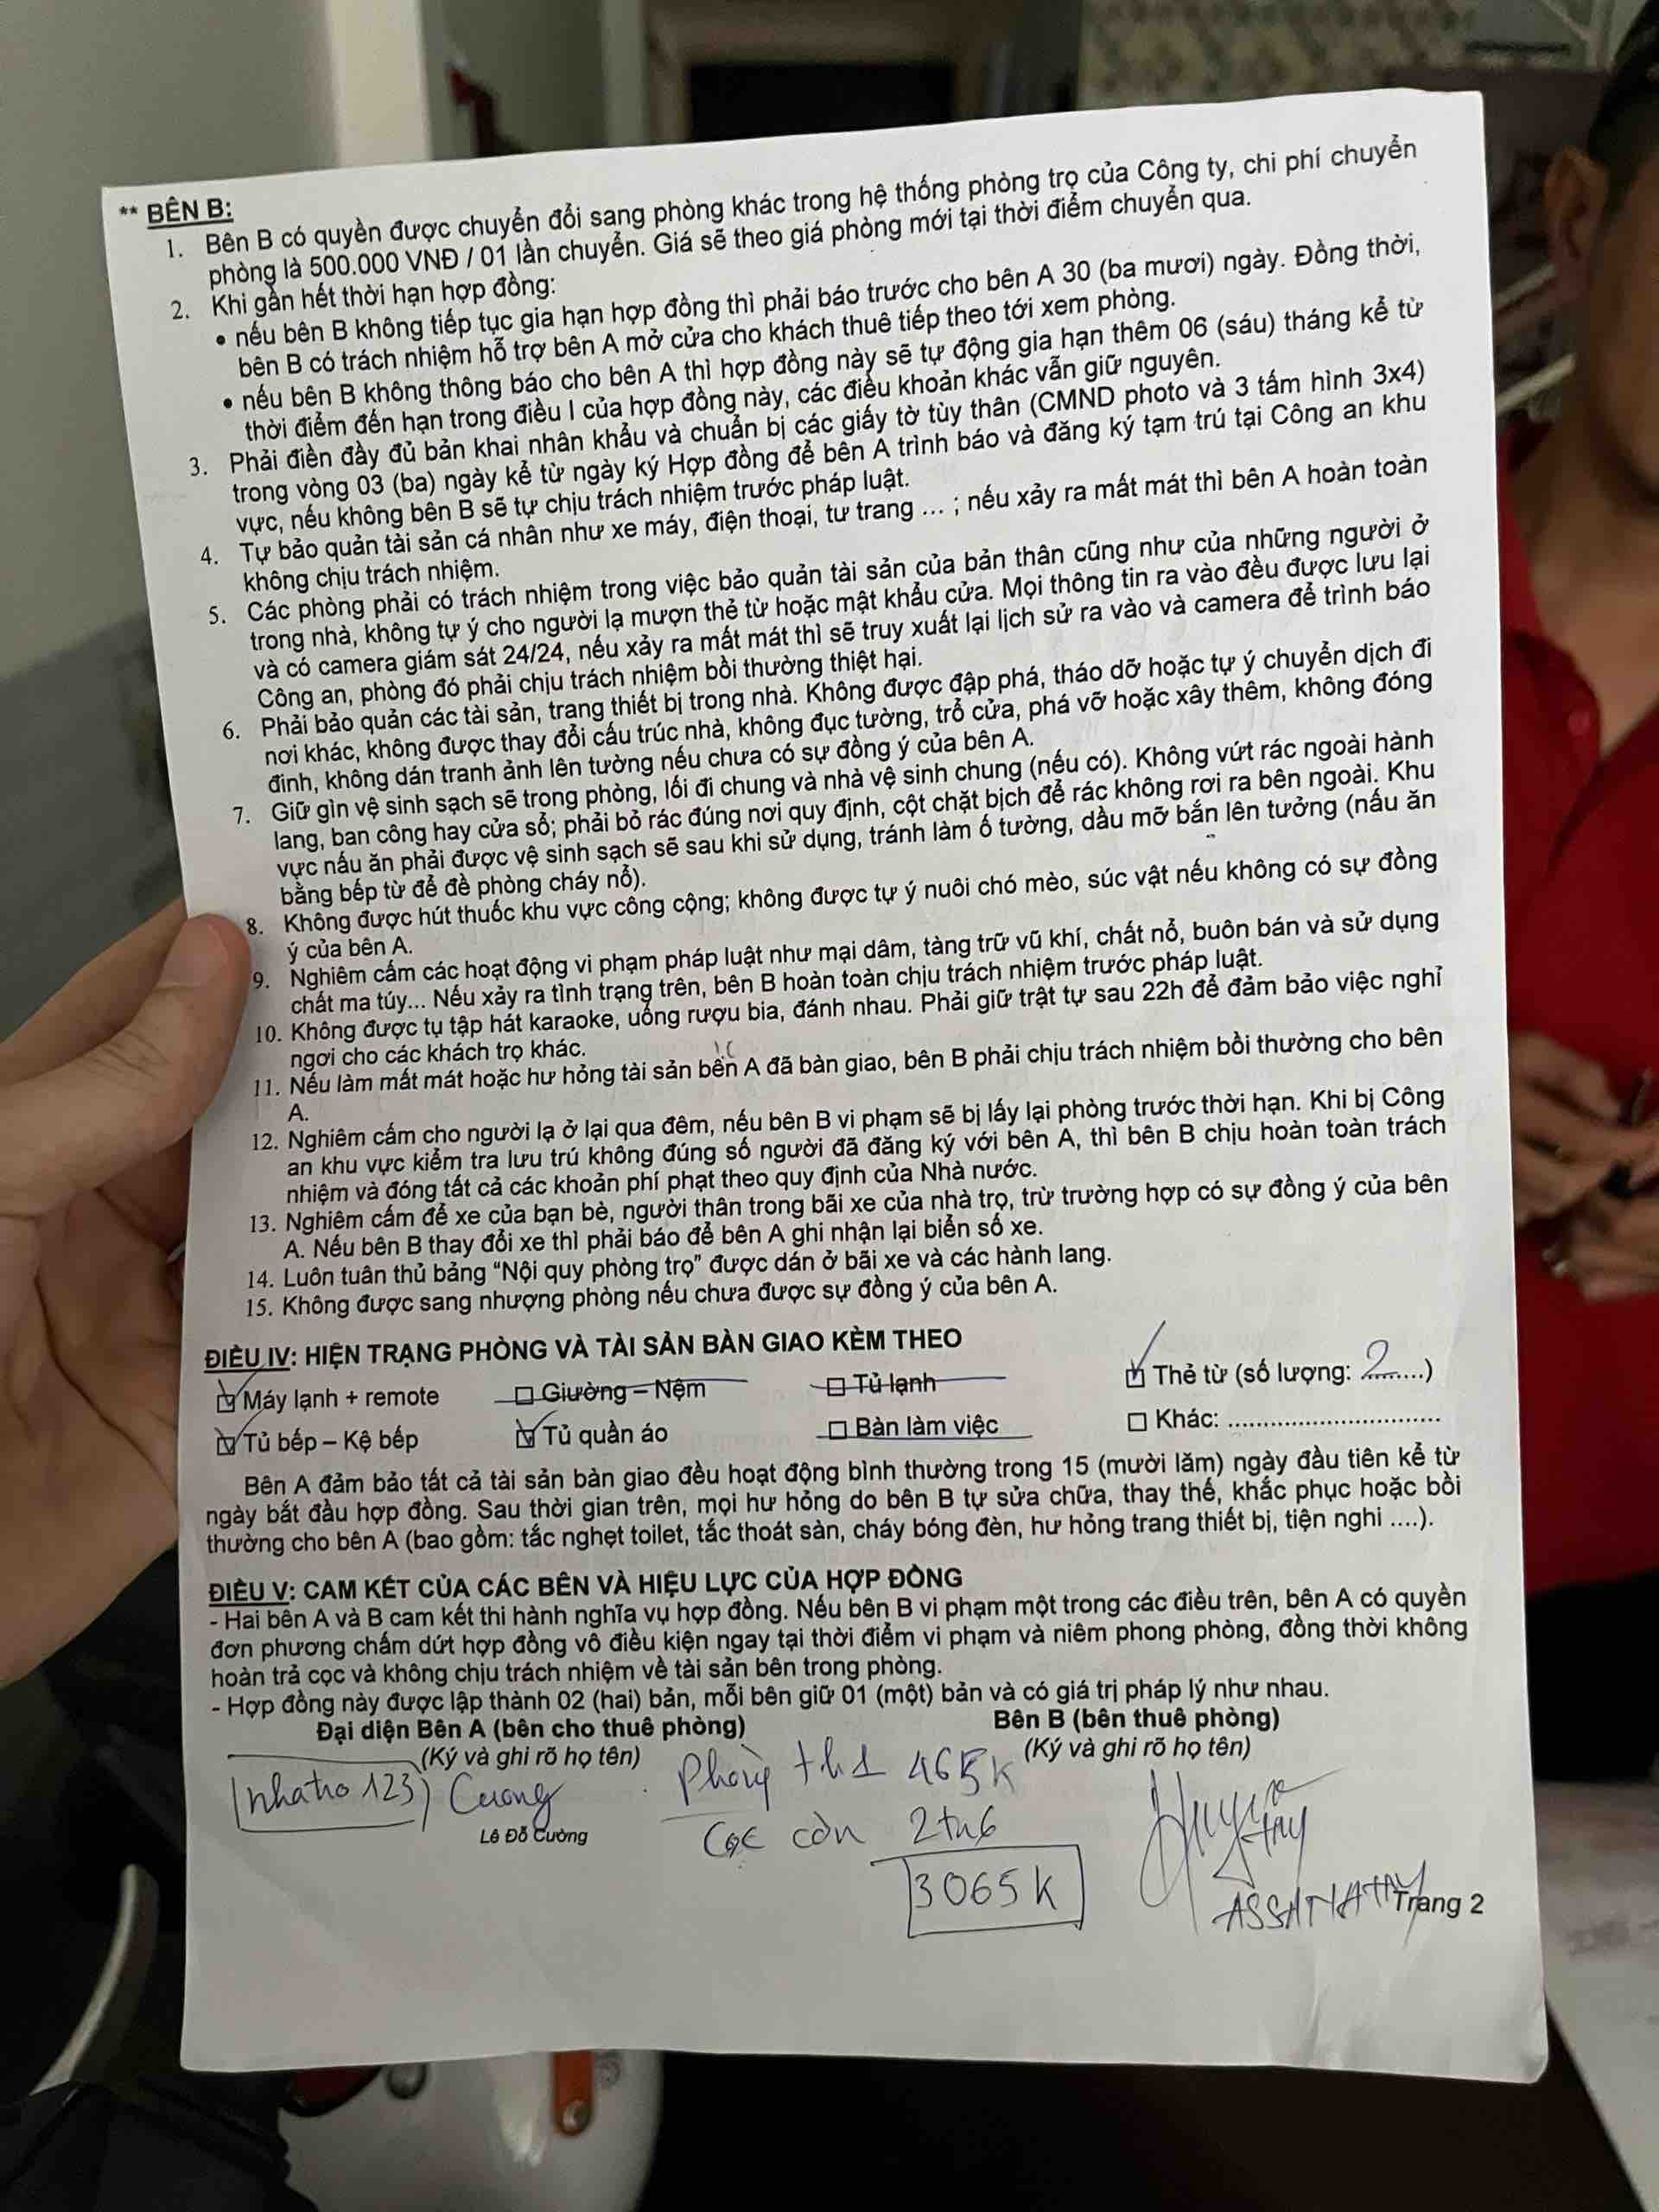 ** BÊN B:
1. Bên B có quyền được chuyển đổi sang phòng khác trong hệ thống phòng trọ của Công ty, chi phí chuyển
phòng là 500.000 VNĐ / 01 lần chuyển. Giá sẽ theo giá phòng mới tại thời điểm chuyển qua.
2. Khi gần hết thời hạn hợp đồng:
• nếu bên B không tiếp tục gia hạn hợp đồng thì phải báo trước cho bên A 30 (ba mươi) ngày. Đồng thời,
bên B có trách nhiệm hỗ trợ bên A mở cửa cho khách thuê tiếp theo tới xem phòng.
• nếu bên B không thông báo cho bên A thì hợp đồng này sẽ tự động gia hạn thêm 06 (sáu) tháng kể từ
thời điểm đến hạn trong điều I của hợp đồng này, các điều khoản khác vẫn giữ nguyên.
3. Phải điền đầy đủ bản khai nhân khẩu và chuẩn bị các giấy tờ tùy thân (CMND photo và 3 tấm hình 3x4)
trong vòng 03 (ba) ngày kể từ ngày ký Hợp đồng để bên A trình báo và đăng ký tạm trú tại Công an khu
vực, nếu không bên B sẽ tự chịu trách nhiệm trước pháp luật.
4. Tự bảo quản tài sản cá nhân như xe máy, điện thoại, tư trang ... ; nếu xảy ra mất mát thì bên A hoàn toàn
không chịu trách nhiệm.
5. Các phòng phải có trách nhiệm trong việc bảo quản tài sản của bản thân cũng như của những người ở
trong nhà, không tự ý cho người lạ mượn thẻ từ hoặc mật khẩu cửa. Mọi thông tin ra vào đều được lưu lại
và có camera giám sát 24/24, nếu xảy ra mất mát thì sẽ truy xuất lại lịch sử ra vào và camera để trình báo
Công an, phòng đó phải chịu trách nhiệm bồi thường thiệt hại.
6. Phải bảo quản các tài sản, trang thiết bị trong nhà. Không được đập phá, tháo dỡ hoặc tự ý chuyển dịch đi
nơi khác, không được thay đổi cấu trúc nhà, không đục tường, trổ cửa, phá vỡ hoặc xây thêm, không đóng
đinh, không dán tranh ảnh lên tường nếu chưa có sự đồng ý của bên A.
7. Giữ gìn vệ sinh sạch sẽ trong phòng, lối đi chung và nhà vệ sinh chung (nếu có). Không vứt rác ngoài hành
lang, ban công hay cửa sổ; phải bỏ rác đúng nơi quy định, cột chặt bịch để rác không rơi ra bên ngoài. Khu
vực nấu ăn phải được vệ sinh sạch sẽ sau khi sử dụng, tránh làm ố tường, dầu mỡ bắn lên tưởng (nấu ăn
bằng bếp từ để đề phòng cháy nổ).
8. Không được hút thuốc khu vực công cộng; không được tự ý nuôi chó mèo, súc vật nếu không có sự đồng
ý của bên A.
9. Nghiêm cấm các hoạt động vi phạm pháp luật như mại dâm, tàng trữ vũ khí, chất nổ, buôn bán và sử dụng
chất ma túy... Nếu xảy ra tình trạng trên, bên B hoàn toàn chịu trách nhiệm trước pháp luật.
10. Không được tụ tập hát karaoke, uống rượu bia, đánh nhau. Phải giữ trật tự sau 22h để đảm bảo việc nghỉ
ngơi cho các khách trọ khác.
11. Nếu làm mất mát hoặc hư hỏng tài sản bên A đã bàn giao, bên B phải chịu trách nhiệm bồi thường cho bên
A.
12. Nghiêm cấm cho người lạ ở lại qua đêm, nếu bên B vi phạm sẽ bị lấy lại phòng trước thời hạn. Khi bị Công
an khu vực kiểm tra lưu trú không đúng số người đã đăng ký với bên A, thì bên B chịu hoàn toàn trách
nhiệm và đóng tất cả các khoản phí phạt theo quy định của Nhà nước.
13. Nghiêm cấm để xe của bạn bè, người thân trong bãi xe của nhà trọ, trừ trường hợp có sự đồng ý của bên
A. Nếu bên B thay đổi xe thì phải báo để bên A ghi nhận lại biển số xe.
14. Luôn tuân thủ bảng “Nội quy phòng trọ” được dán ở bãi xe và các hành lang.
15. Không được sang nhượng phòng nếu chưa được sự đồng ý của bên A.
ĐIỀU IV: HIỆN TRẠNG PHÒNG VÀ TÀI SẢN BÀN GIAO KÈM THEO
☑ Máy lạnh + remote ☐ Giường – Nệm ☐ Tủ lạnh ☑ Thẻ từ (số lượng: 2........)
☑ Tủ bếp – Kệ bếp ☑ Tủ quần áo ☐ Bàn làm việc ☐ Khác: ..............................
Bên A đảm bảo tất cả tài sản bàn giao đều hoạt động bình thường trong 15 (mười lăm) ngày đầu tiên kể từ
ngày bắt đầu hợp đồng. Sau thời gian trên, mọi hư hỏng do bên B tự sửa chữa, thay thế, khắc phục hoặc bồi
thường cho bên A (bao gồm: tắc nghẹt toilet, tắc thoát sàn, cháy bóng đèn, hư hỏng trang thiết bị, tiện nghi ....).
ĐIỀU V: CAM KẾT CỦA CÁC BÊN VÀ HIỆU LỰC CỦA HỢP ĐỒNG
- Hai bên A và B cam kết thi hành nghĩa vụ hợp đồng. Nếu bên B vi phạm một trong các điều trên, bên A có quyền
đơn phương chấm dứt hợp đồng vô điều kiện ngay tại thời điểm vi phạm và niêm phong phòng, đồng thời không
hoàn trả cọc và không chịu trách nhiệm về tài sản bên trong phòng.
- Hợp đồng này được lập thành 02 (hai) bản, mỗi bên giữ 01 (một) bản và có giá trị pháp lý như nhau.
Đại diện Bên A (bên cho thuê phòng) Bên B (bên thuê phòng)
(Ký và ghi rõ họ tên) (Ký và ghi rõ họ tên)
nhatro 123 Cuong Phòng th1 465k
Lê Đỗ Cường Cọc còn 2tr6
3065k
Trang 2